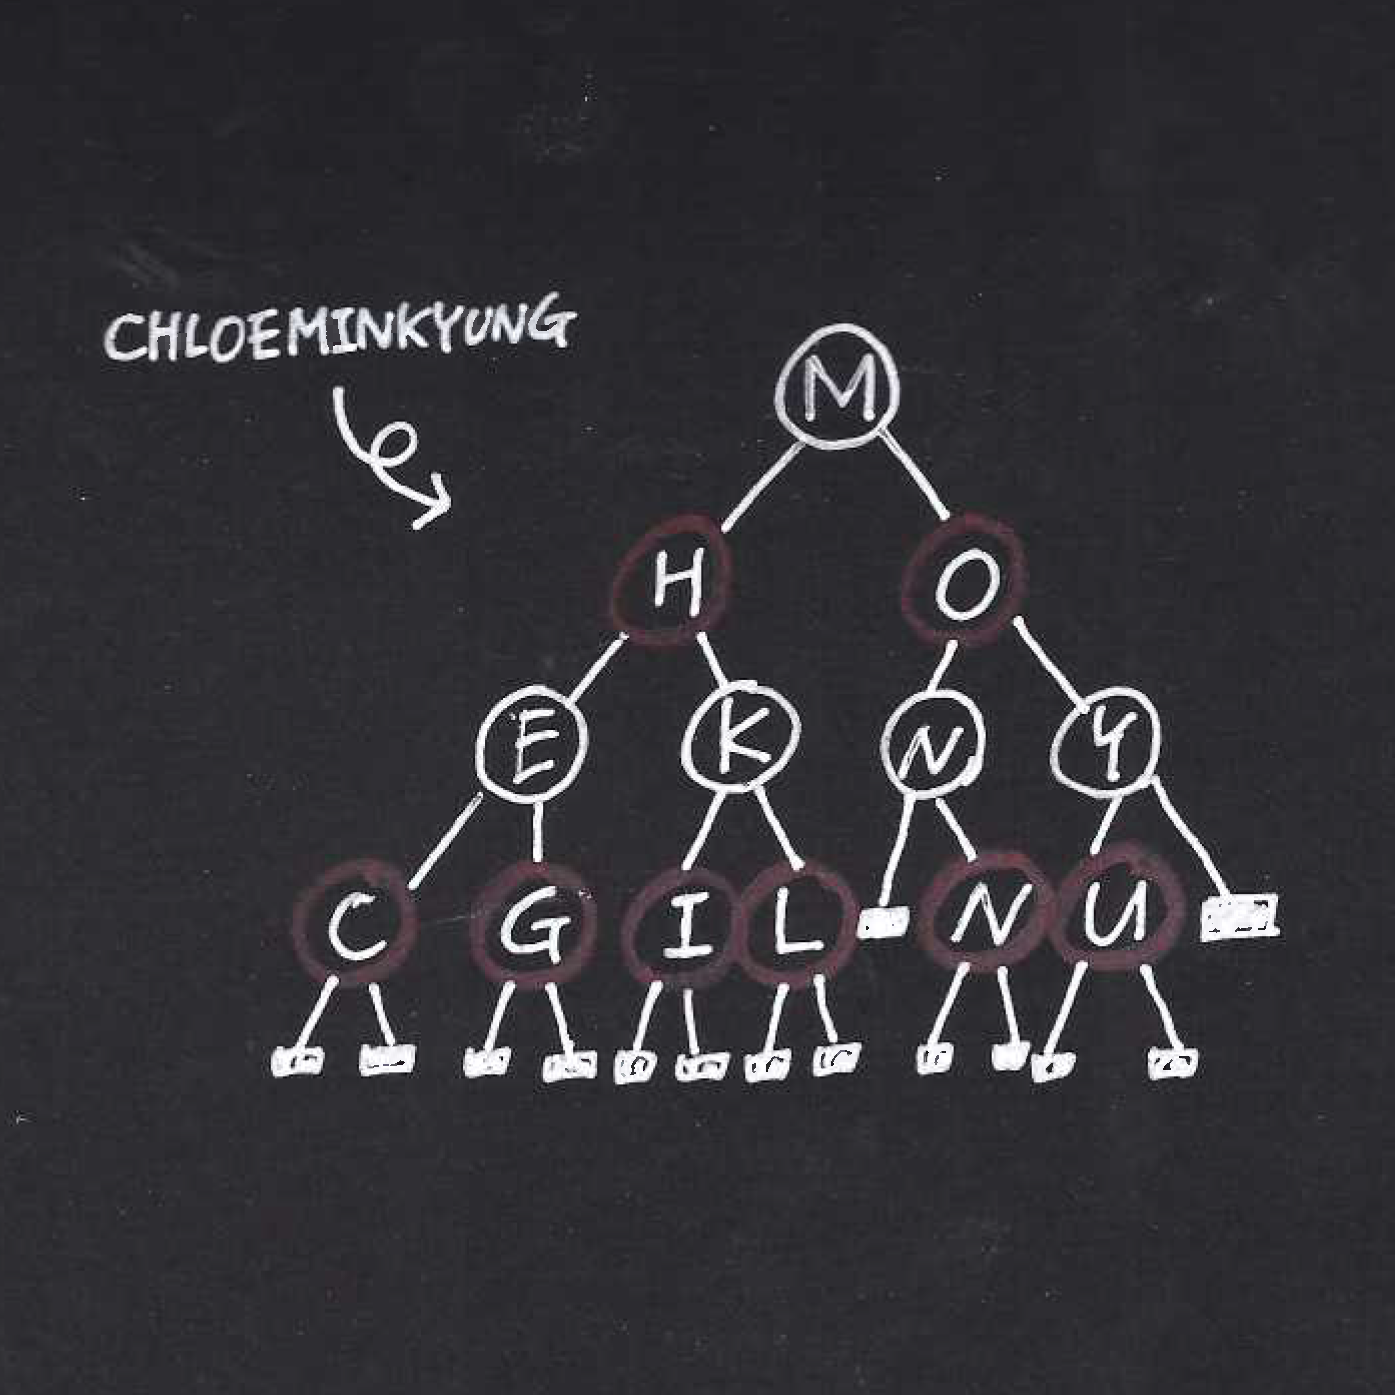 CHLOEMINKYUNG
M
H O
E K N Y
C G I L N U